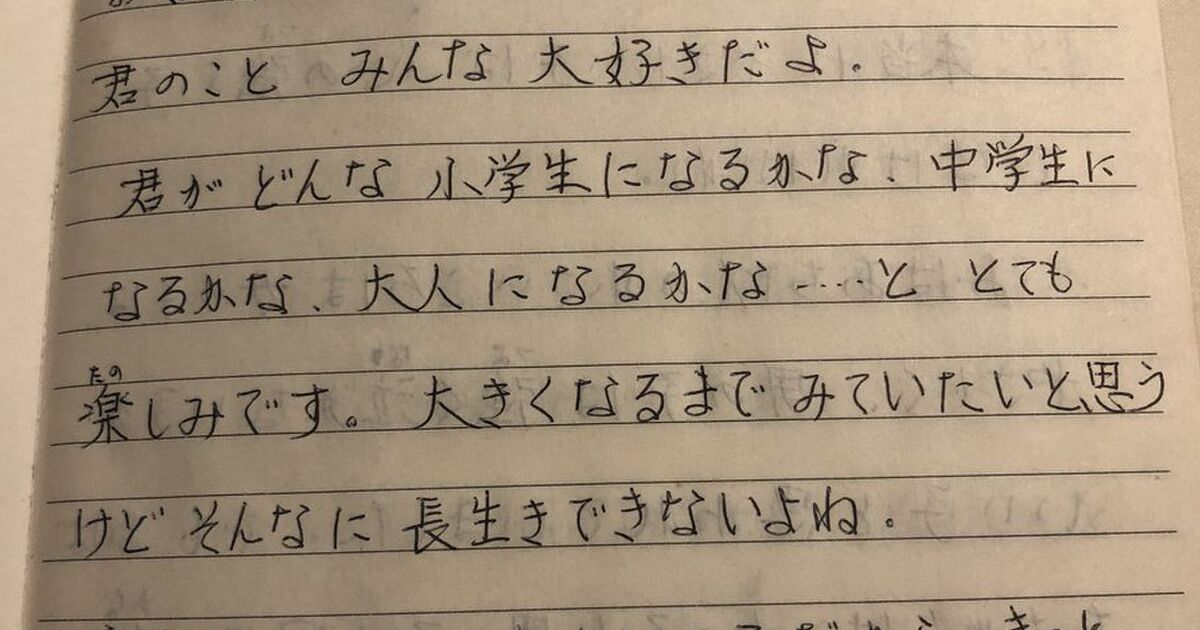 君のこと みんな 大好きだよ.
君が どんな 小学生になるかな、中学生に
なるかな、大人になるかな……と とても
たの
楽しみです。大きくなるまで みていたいと思う
けど そんなに 長生きできないよね。